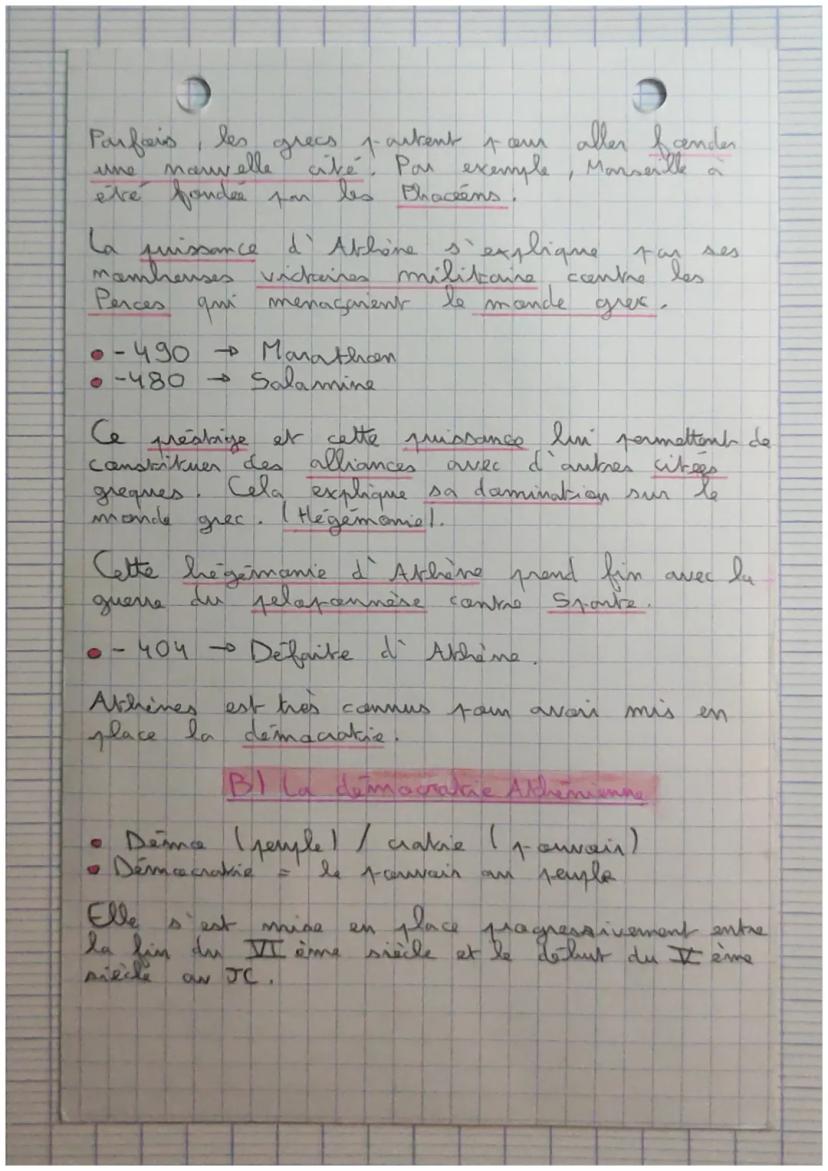 Parfois, les grecs partent pour aller fonder
une nouvelle cité. Par exemple, Marseille a
été fondée par les Phocéens.
La puissance d'Athène s'explique par ses
nombreuses victoires militaire contre les
Perces qui menaçaient le monde grec.
• -490 → Marathon
• -480 → Salamine
Ce préstige et cette puissance lui permettent de
constituer des alliances avec d'autres citées
greques. Cela explique sa domination sur le
monde grec. (Hégémonie).
Cette hégémonie d'Athène prend fin avec la
guerre du péloponnèse contre Sparte.
• -404 → Défaite d'Athène.
Athènes est très connus pour avoir mis en
place la démocratie.
B) La démocratie Athénienne
• Démo (peuple) / cratie (pouvoir)
• Démocratie = le pouvoir au peuple
Elle s'est mise en place progressivement entre
la fin du VI ème siècle et le début du V ème
siècle av JC.